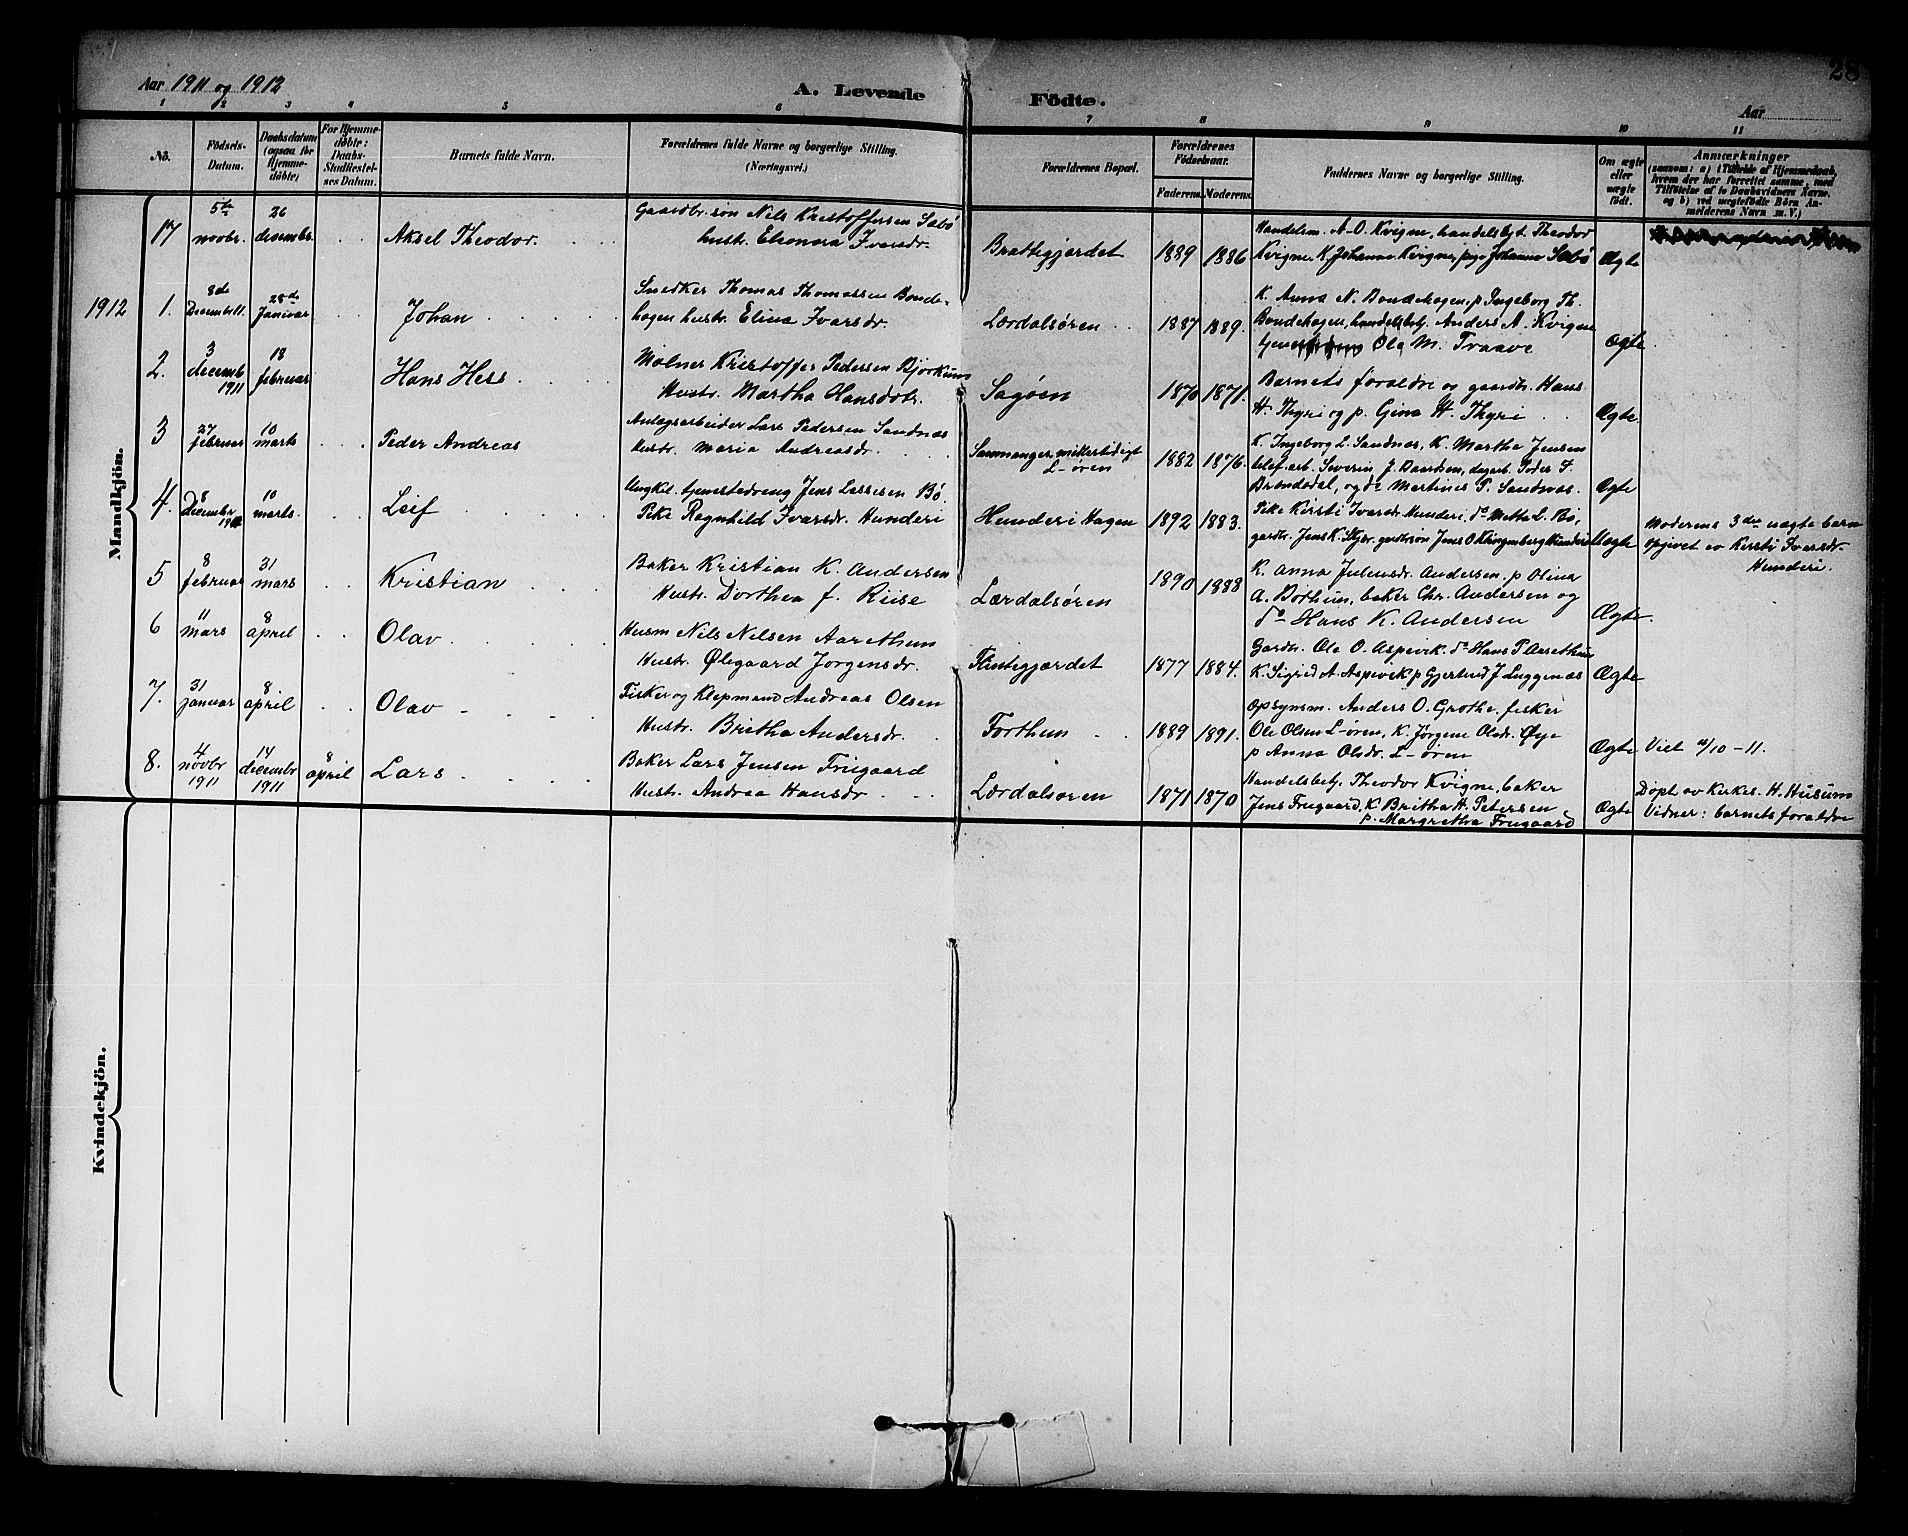 28
Aar 1911 og 1912
A. Levende Födte.
Aar
1 2 3 4 5 6 7 8 9 10 11
No.
Födsels-
Datum.
Daabsdatum
(ogsaa for
Hjemme-
döbte)
For Hjemme-
döbte:
Daabs-
Stadfæstel-
ses Datum.
Barnets fulde Navn.
Forældrenes fulde Navne og borgerlige Stilling.
(Næringsvei.)
Forældrenes Bopæl.
Forældrenes
Födselsaar.
Faderens.
Moderens.
Faddernes Navne og borgerlige Stilling.
Om ægte
eller
uægte
födt.
Anmærkninger
(saasom: a) i Tilfælde af Hjemmedaab,
hvem der har forrettet samme, med
Tilföielse af to Daabsvidners Navne.
og b) ved uægtefödte Börn An-
melderens Navn m. V.)
Mandkjön.
17
5te
novbr.
26
desembr.
Aksel Theodor.
Gaardbr. søn Nils Kristoffersen Sæbö
hustr. Eleonora Ivarsdr.
Brattegjærdet
1889
1886
Handelsm. A. O. Kvigne, handelsbyt. Theodor
Kvigne, K. Johanne Kvigne, pige Johanne Sæbö
Ægte
1912
1.
8de
Decemb 11.
28de
Januar
Johan
Snedker Thomas Thomassen Bonde-
hagen hustr. Elina Ivarsdr.
Lærdalsören
1887
1889.
K. Anna N. Bondehagen, p Ingeborg Th.
Bondehagen, handelsbetj. Anders A. Kvigne
Ola M. Traave
Ægte
2.
3
decemb
1911
18
februar
Hans Hess
Mölner Kristoffer Pedersen Björkum
Hustr. Martha Hansdatr.
Sagöen
1870
1871.
Barnets foraldre og gaardbr. Hans
H. Thyri og p. Gina H. Thyri
Ægte.
3
27
februar
10
marts
Peder Andreas
Anlægsarbeider Lars Pedersen Sandnæs
Hustr. Maria Andreasdr.
Sammanger, midlertidigt
L-ören
1882
1876.
K. Ingeborg L. Sandnæs, K. Martha Jensen
telef. arb. Severin J. Daardsen, dagarb. Peder S.
Brøndedal, og do Martines P. Sandnæs.
Ægte
4.
8
December
10
marts.
Leif
Ungkel. tjenestedreng Jens Lassesen Bö
Pike Ragnhild Ivarsdr. Hunderi
Hunderi Hagen
1892
1883.
Pike Kirsti Ivarsdr. Hunderi, do Metta L. Bö,
gardbr. Jens K. Skjer, Jens O Klingenberg Hunderi
Uægte
Moderens 3die uægte barn
opgivet av Kersti Ivarsdr.
Hunderi.
5
8
februar
31
mars
Kristian
Baker Kristian K. Andersen
Hustr. Dorthea f. Riise
Lærdalsören
1890
1888
K. Anna Julensdr. Andersen, p Olina
A. Bothun, baker Chr. Andersen og
do Hans K. Andersen
Ægte.
6
11
mars
8
april
Olav
Husm Nils Nilsen Aarethun
Hustr. Ølegaard Jørgensdr.
Flintegjærdet
1877
1884.
Gardbr. Ole O. Aspevik. do Hans P. Aarethun
K. Sigrid A. Aspevik p Gjertrud J Luggenæs
Ægte
7.
31
januar
8
april
Olav
Fisker og Klepmand Andreas Olsen
Hustr. Britha Andersdr.
Forthun
1889
1891.
Opsynsm. Anders O. Grothe, fisker
Ole Olsen L-ören, K. Jörgine Olsdr. Øije
p Anna Olsdr. L-ören
Ægte
Viet /10-11.
8.
4
novbr
1911
14
decembr
1911
8
april
Lars
Baker Lars Jensen Friegaard
Hustr. Andrea Hansdr
Lærdalsören
1871
1870
Handelsbetj. Theodor Kvigne, baker
Jens Fruegaard, K Britha H. Petersen
p. Margretha Fruegaard
Ægte
Döpt av Kirkes. H. Husum
Vidner: barnets foraldre
Kvindekjön.